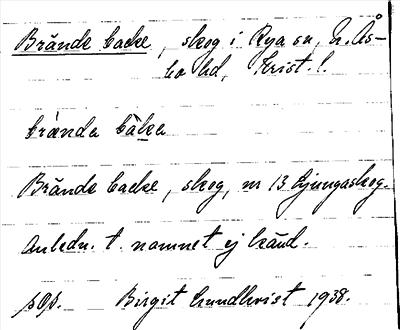 Brände backe, skog i Rya sn, N. Ås-
bo hd, Krist. l.
brǻnda bàkა
Brände backe, skog, nr 13 Ljungaskog.
Anledn. t. namnet ej känd.
pOp. Birgit Lundkvist 1938.